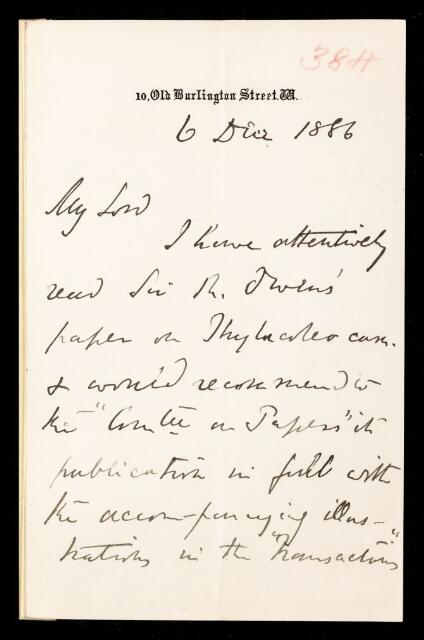 384
10, Old Burlington Street. W.
6 Decr 1886
My Lord
I have attentively
read Sir R. Owens'
paper on Thylacoleo carn.
& would recommend to
the "Comtee on Papers" its
publication in full with
the accompanying illus-
trations in the "Transactions"